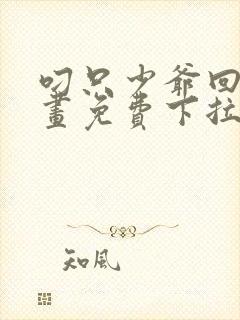 叼只少爷回
畫免費下拉
知風